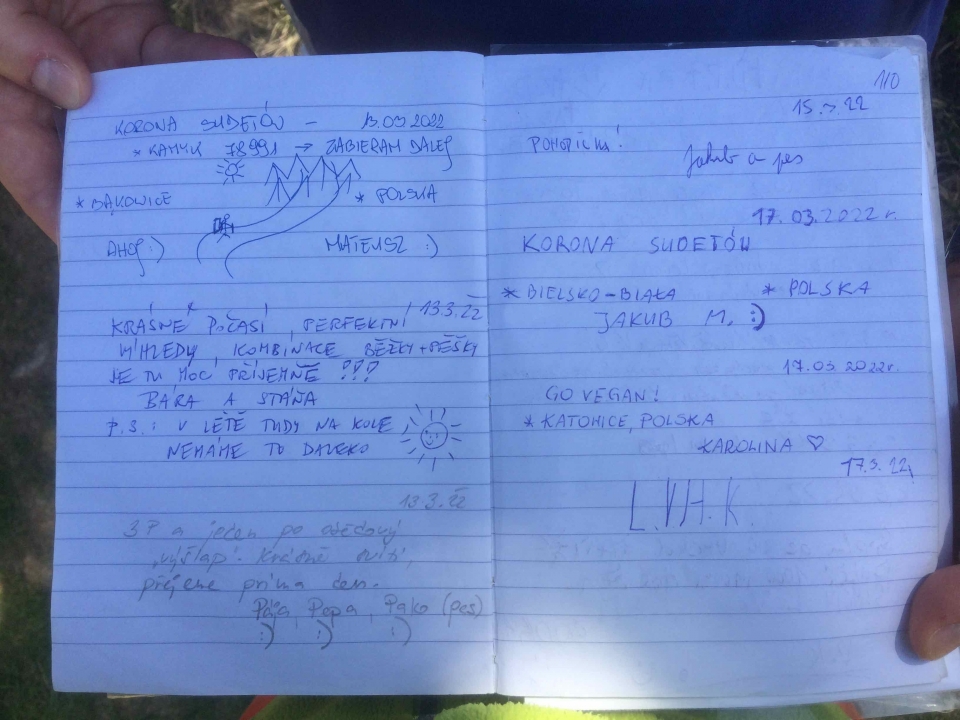 KORONA SUDETÓW – 13.03.2022
* KAMYK 78991 → ZABIERAM DALEJ
* BĄKOWICE * POLSKA
AHOJ :) MATEUSZ :)
13.3.22
KRÁSNÉ POČASÍ, PERFEKTNÍ
VÍHLEDY, KOMBINACE BĚŽKY + PĚŠKY
JE TU MOC PŘÍJEMNĚ !!!
BÁRA A STÁŇA
P.S.: V LÉTĚ TUDY NA KOLE
NEMÁME TO DALEKO
13.3.22
3P a jeden po obědový
"výšlap". Krásně svítí,
přejeme prima den.
Pája, Pepa, Pako (pes)
:) :) :)
110
15. 22
POHOPIČKU!
Jakub a pes
17.03.2022 r.
KORONA SUDETÓW
* BIELSKO-BIAŁA * POLSKA
JAKUB M. :)
17.03.2022r.
GO VEGAN!
* KATOWICE, POLSKA
KAROLINA ♡
17.3.22